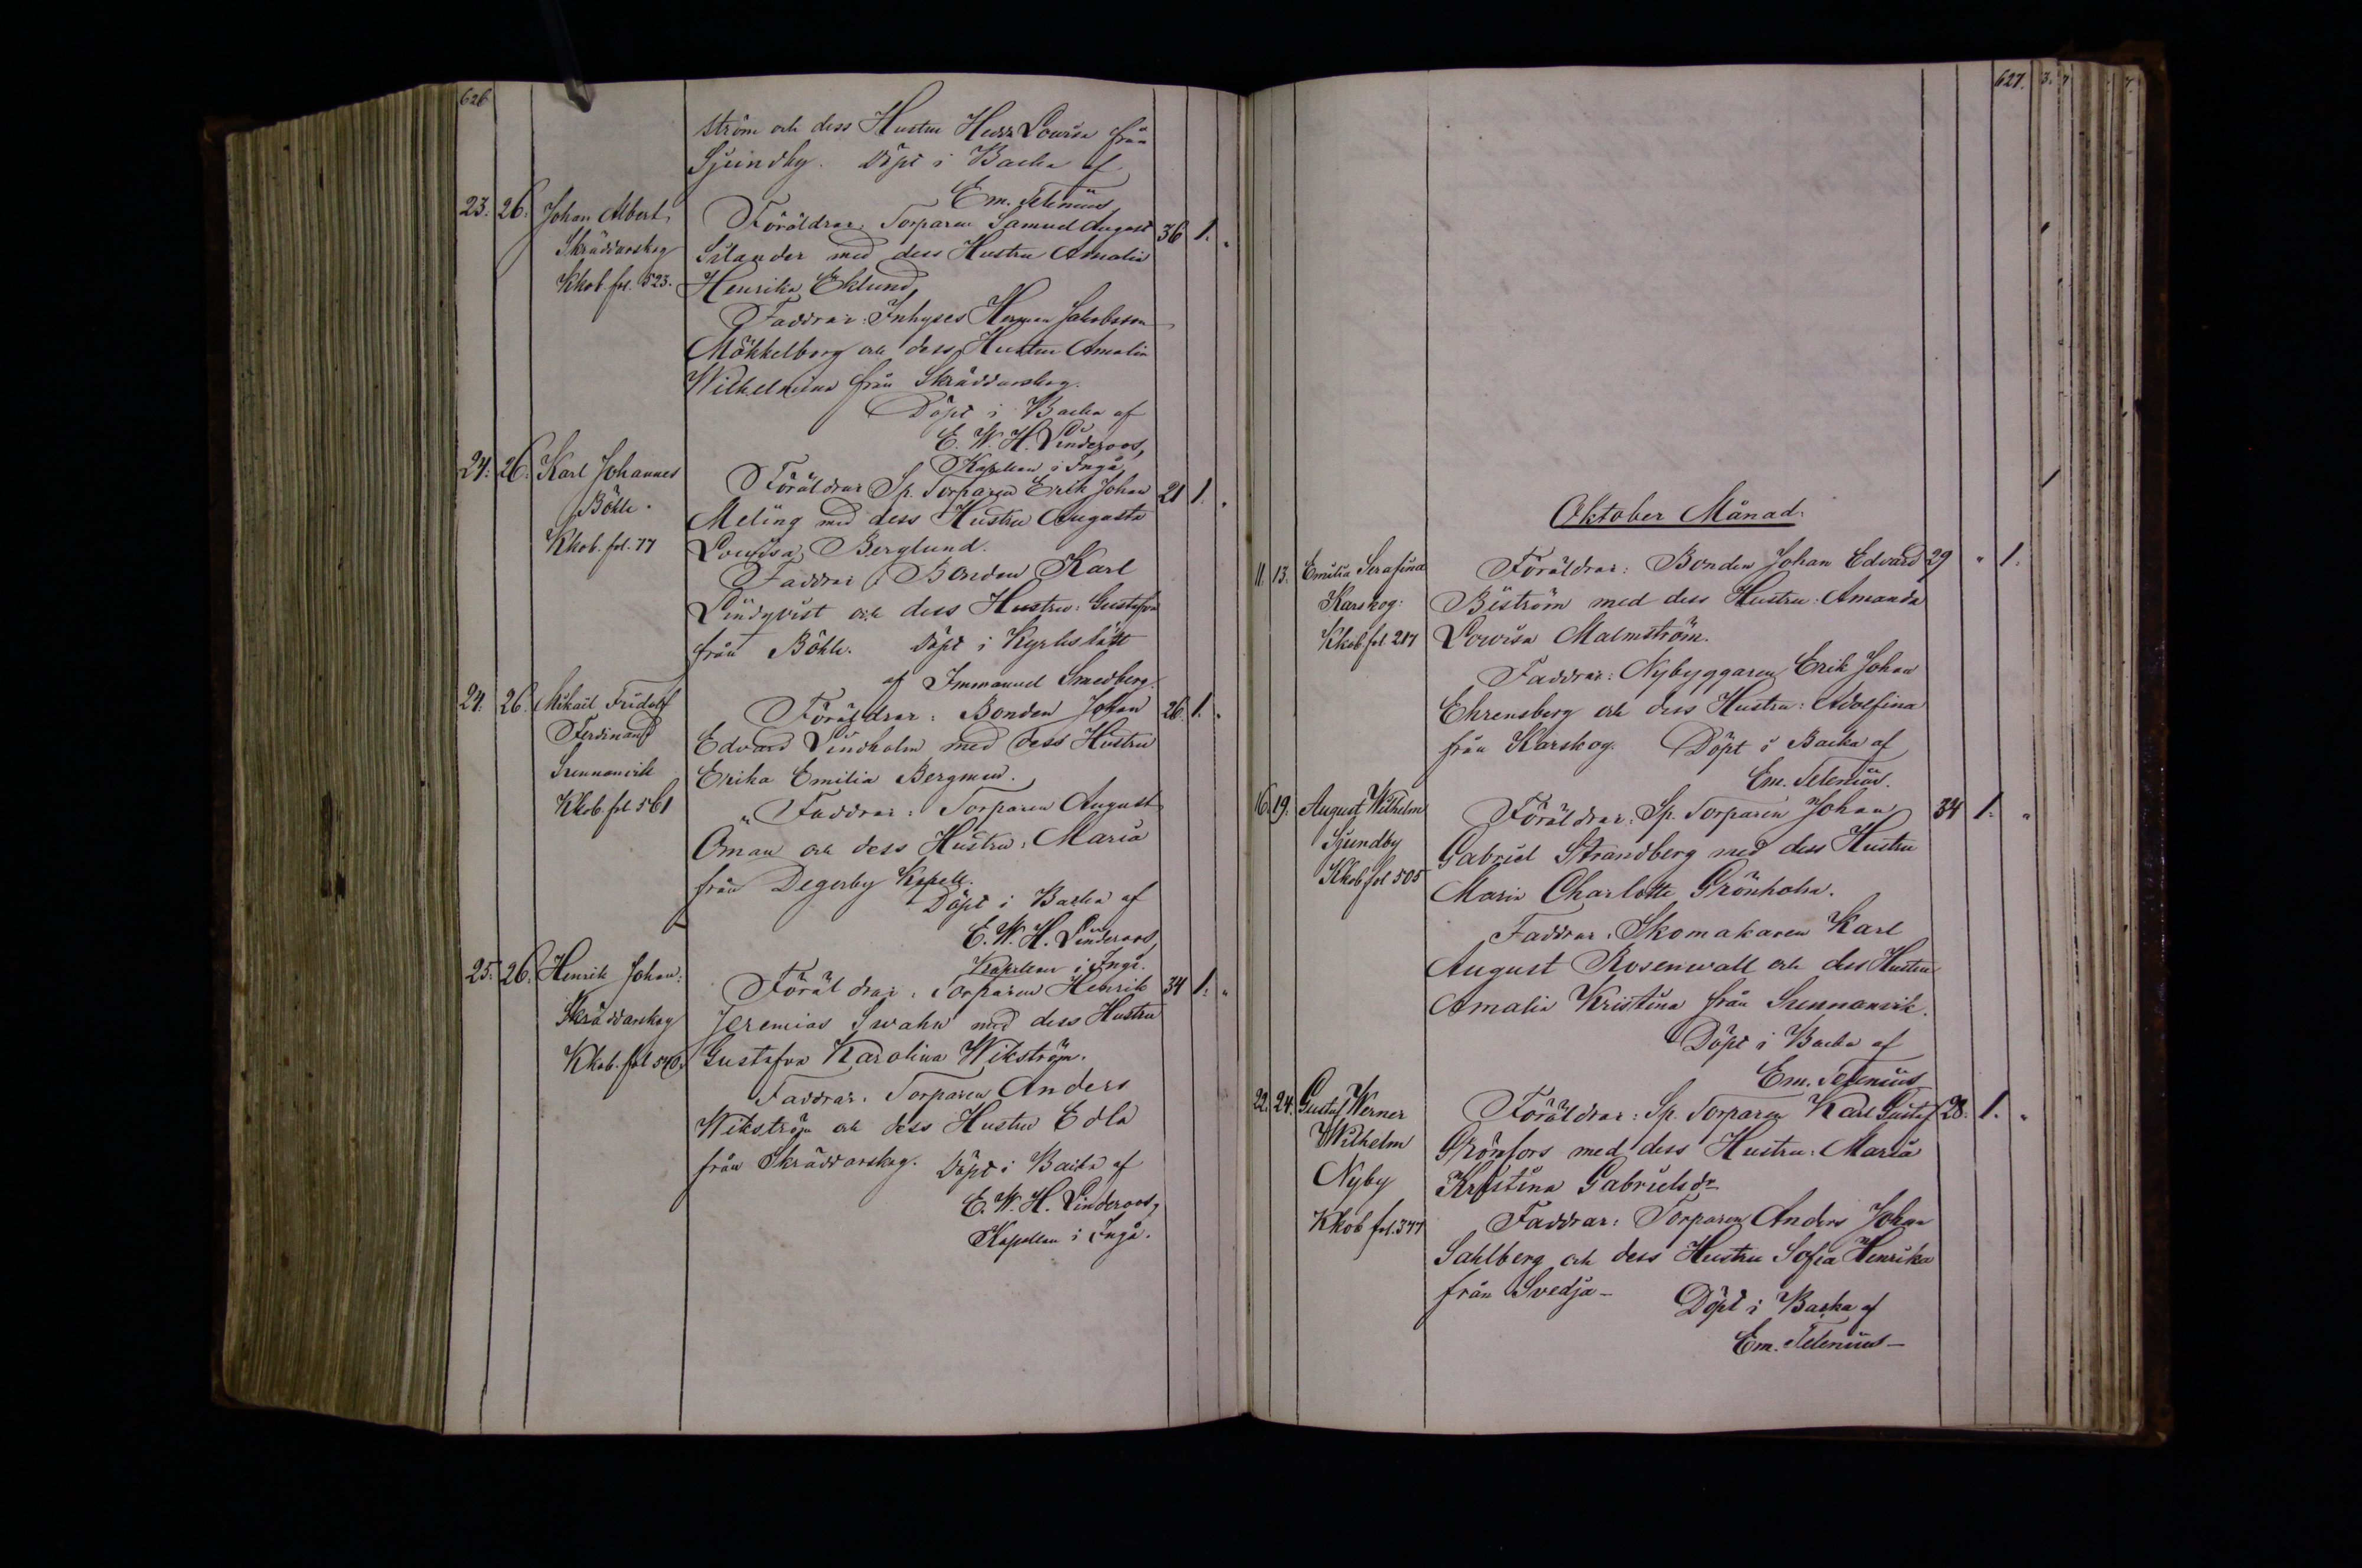 626
ström och dess Hustru Hedda Lovisa från
Sjundby. Döpt i Backa af
Em. Telenius
23. 26. Johan Albert, Föräldrar: Torparen Samuel August 36 1. "
Skräddarskog Silander med dess Hustru Amalia
Kkob. fol. 523. Henrika Eklund,
Faddrar: Inhyses Herman Jakobsson
Mökkelborg och dess Hustru Amalia
Wilhelmina från Skräddarskog.
Döpt i Backa af
E. W. H. Linderoos,
Kapellan i Ingå
24. 26. Karl Johannes Föräldrar Sp. Torparen Erik Johan 21 1. "
Böhle. Meling med dess Hustru Augusta
Kkob. fol. 77 Lovisa Berglund.
Faddrar: Bonden Karl
Lindqvist och dess Hustru: Gustafva
från Böhle. Döpt i Kyrkslätt
af Immanuel Smedberg.
24. 26. Mikail Fridolf Föräldrar: Bonden Johan 26. 1. "
Ferdinand Edvard Lindholm med dess Hustru
Sunnanvik Erika Emilia Bergman.
Kkob. fol 561 Faddrar: Torparen August
Öman och dess Hustru: Maria
från Degerby Kapell.
Döpt i Backa af
E. W. H. Linderoos,
Kapellan i Ingå.
25. 26. Henrik Johan: Föräldrar: Torparen Henrik 34 1. "
Skräddarskog Jeremias Swahn med dess Hustru
Kkob. fol 540. Gustafva Karolina Wikström.
Faddrar: Torparen Anders
Wikström och dess Hustru Edla
från Skräddarskog. Döpt i Backa af
E. W. H. Linderoos,
Kapellan i Ingå.
627.
Oktober Månad.
11. 13. Emilia Serafina Föräldrar: Bonden Johan Edvard 29 " 1.
Karskog: Biström med dess Hustru: Amanda
Kkob. fol 217 Lovisa Malmström.
Faddrar: Nybyggaren Erik Johan
Ehrensberg och dess Hustru: Adolfina
från Karskog. Döpt i Backa af
Em. Telenius.
16. 19. August Wilhelm Föräldrar: Sp. Torparen Johan 34 1. "
Sjundby Gabriel Strandberg med dess Hustru
Kkob fol 505 Maria Charlotta Grönholm.
Faddrar: Skomakaren Karl
August Rosenwall och dess Hustru
Amalia Kristina från Sunnanvik.
Döpt i Backa af
Em. Telenius
22. 24. Gustaf Werner Föräldrar: Sp. Torparen Karl Gustaf 28. 1. "
Wilhelm Grönfors med dess Hustru: Maria
Nyby Kristina Gabrielsdr
Kkob fol. 377 Faddrar: Torparen Anders Johan
Sahlberg och dess Hustru Sofia Henrika
från Svedja – Döpt i Backa af
Em. Telenius –